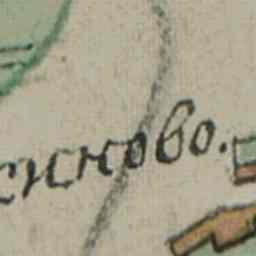 синово.